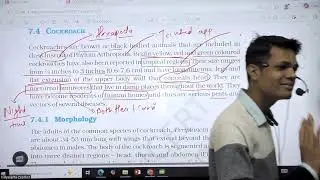 7.4 COCKROACH
Hexapoda
Jointed app
Cockroaches are brown or black bodied animals that are included in
class Insecta of Phylum Arthropoda. Bright yellow, red and green coloured
cockroaches have also been reported in tropical regions. Their size ranges
from ¼ inches to 3 inches (0.6-7.6 cm) and have long antenna, legs and
flat extension of the upper body wall that conceals head. They are
nocturnal omnivores that live in damp places throughout the world. They
have become residents of human homes and thus are serious pests and
vectors of several diseases.
Night
7.4.1 Morphology
The adults of the common species of cockroach, Periplaneta
are about 34-53 mm long with wings that extend beyond
abdomen in males. The body of the cockroach is segmented
into three distinct regions – head, thorax and abdomen